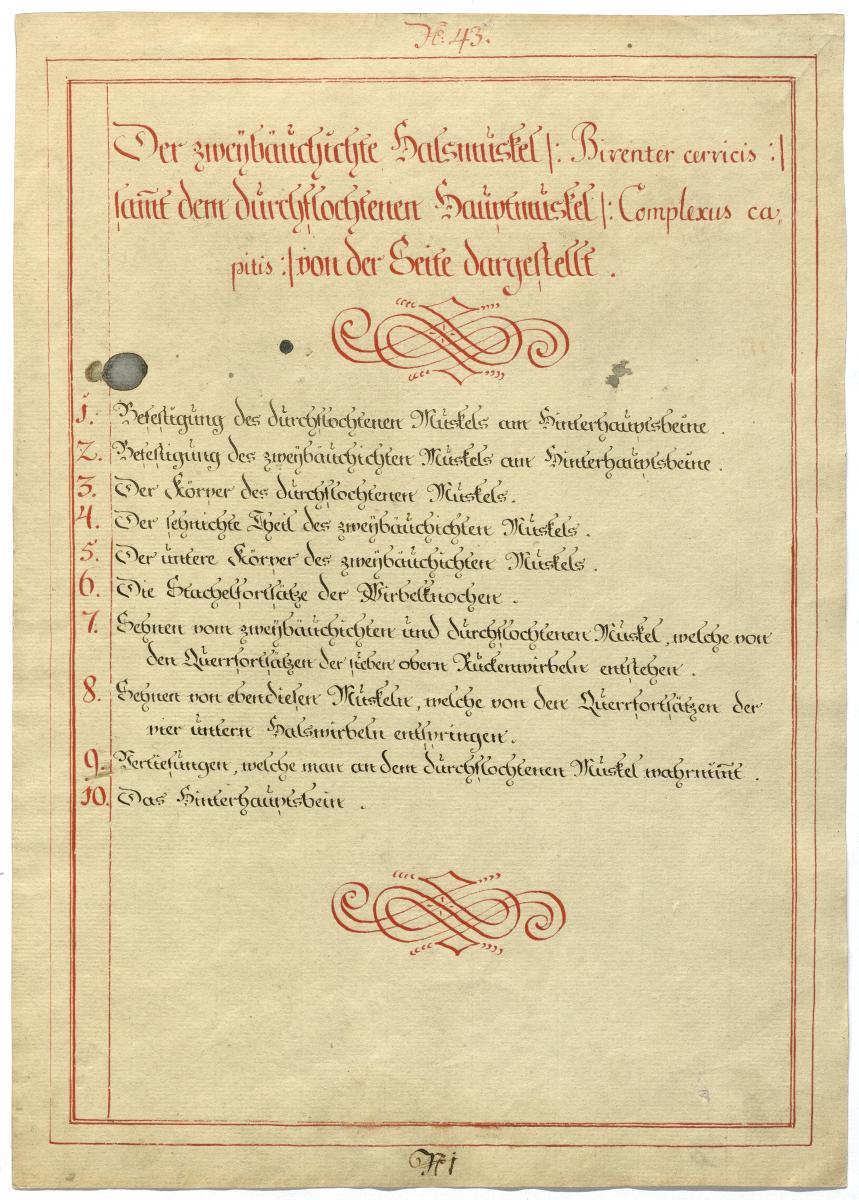 N: 43.
Der zweÿbäuchichte Halsmuskel |: Biventer cervicis :|
sam̅t dem durchflochtenen Hauptmuskel |: Complexus ca,
pitis :| von der Seite dargestellt .
1. Befestigung des durchflochtenen Muskels am Hinterhauptsbeine .
2. Befestigung des zweÿbäuchichten Muskels am Hinterhauptsbeine .
3. Der Körper des durchflochtenen Muskels.
4. Der sehnichte Theil des zweÿbäuchichten Muskels .
5. Der untere Körper des zweÿbäuchichten Muskels .
6. Die Stachelfortsätze der Wirbelknochen .
7. Sehnen vom zweÿbäuchichten und durchflochtenen Muskel, welche von
den Querrfortsätzen der sieben obern Rückenwirbeln entstehen .
8. Sehnen von ebendiesen Muskeln, welche von den Querrfortsätzen der
vier untern Halswirbeln entspringen.
9. Vertiefungen, welche man an dem durchflochtenen Muskel wahrnim̅t .
10. Das Hinterhauptsbein .